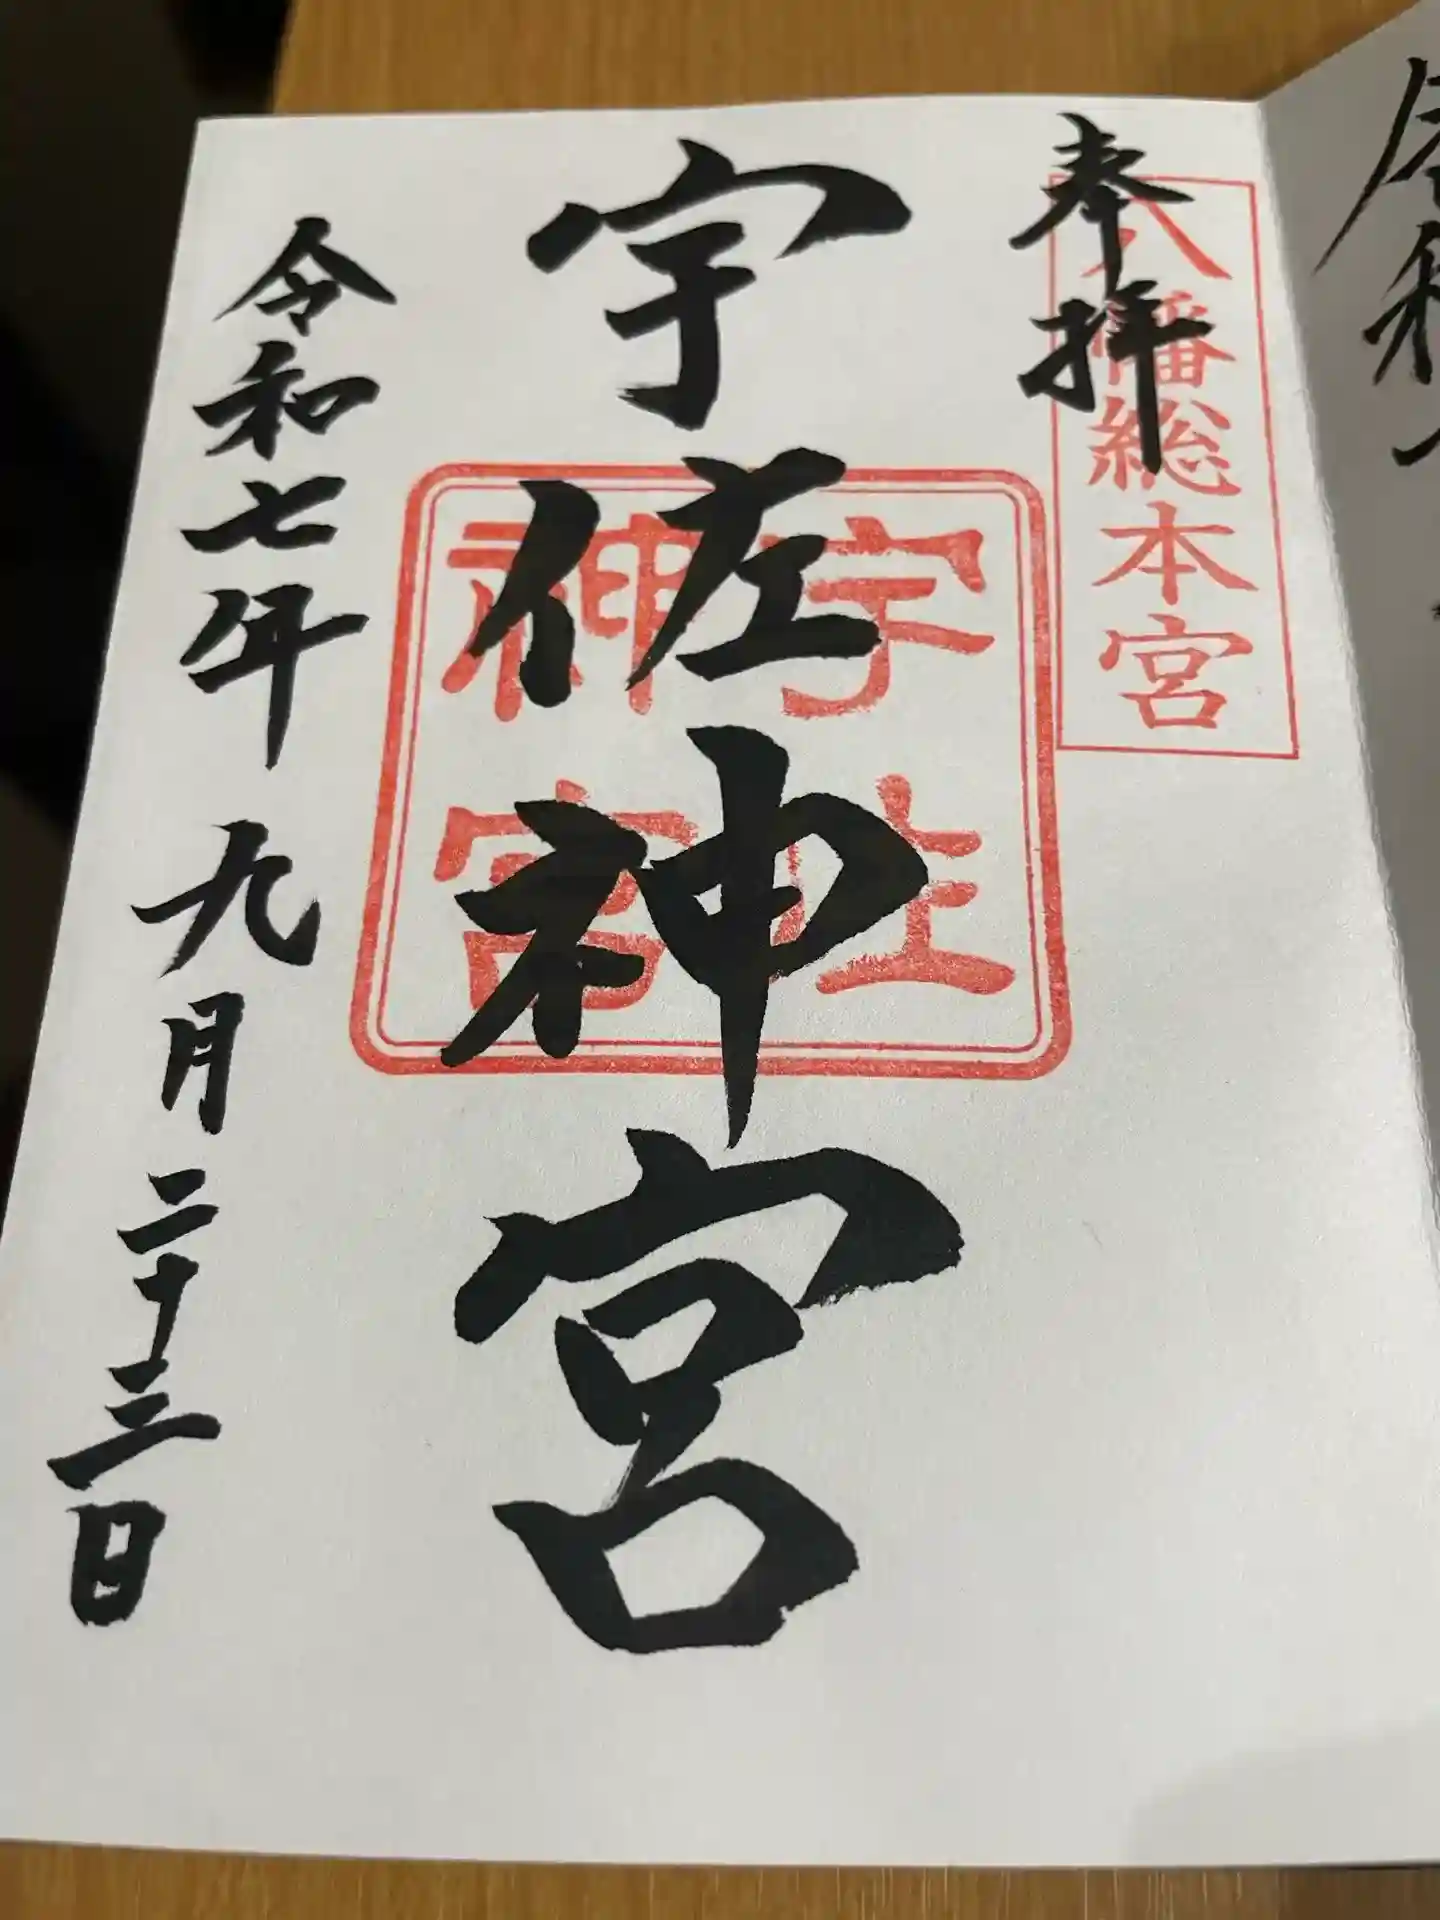 奉拝
八幡総本宮
宇佐神宮
宇佐
神宮
令和七年九月二十三日
令和